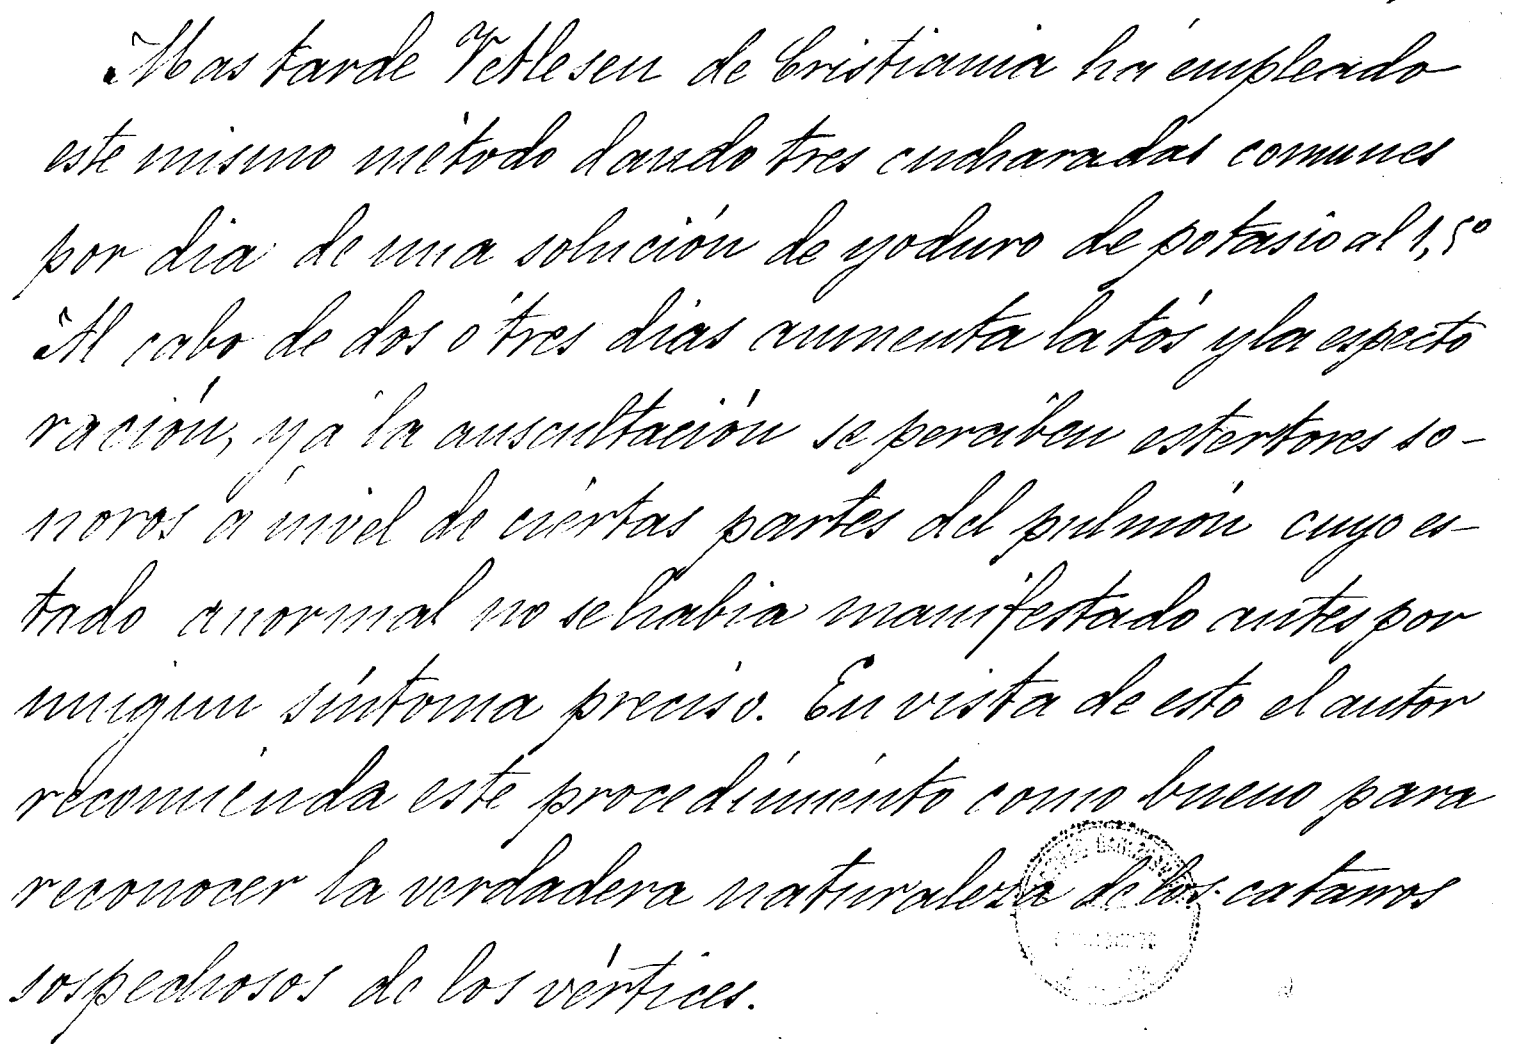 Mas tarde Vetlesen de Cristiania ha empleado
este mismo método dando tres cucharadas comunes
por dia de una solución de yoduro de potasio al 1,5º
Al cabo de dos ó tres dias aumenta la tós y la especto
ración, y á la auscultación se perciben estertores so-
noros á nivel de ciertas partes del pulmón cuyo es-
tado anormal no se habia manifestado antes por
ningun síntoma preciso. En vista de esto el autor
recomienda este procedimiento como bueno para
reconocer la verdadera naturaleza de los catarros
sospechosos de los vértices.